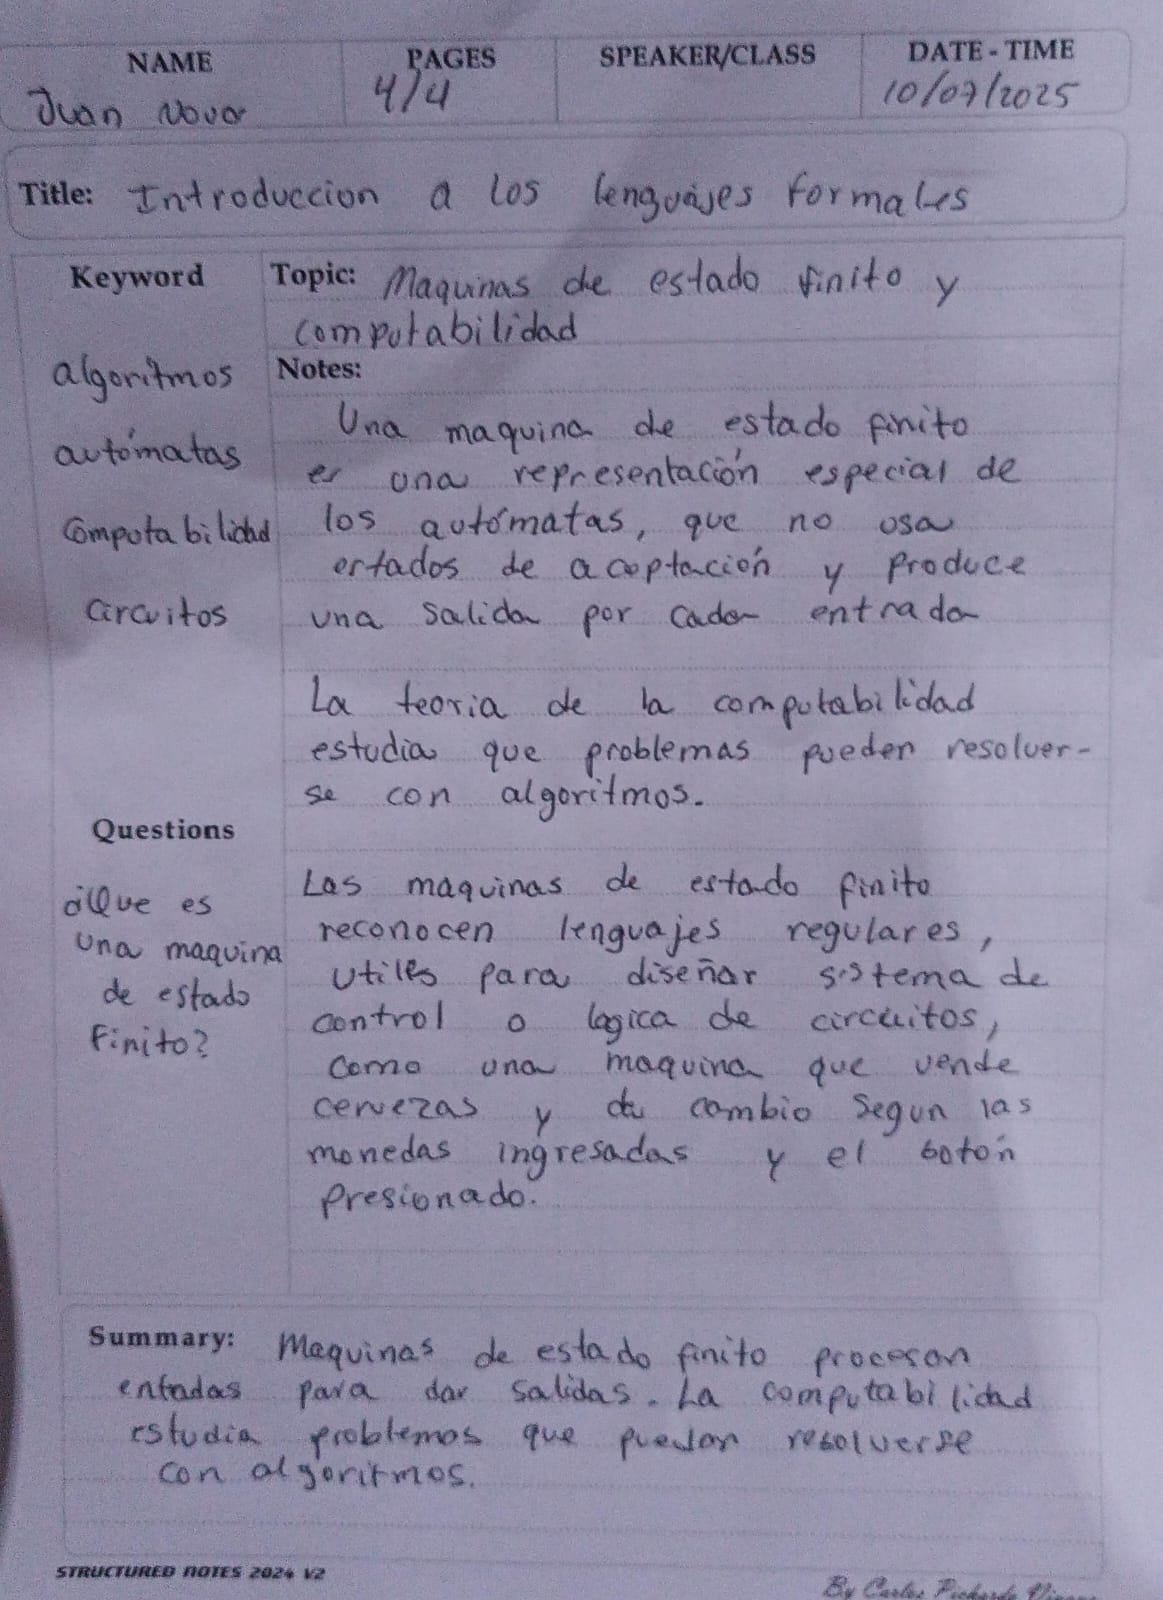 NAME PAGES SPEAKER/CLASS DATE - TIME
Juan Nova 4/4 10/07/2025
Title: Introduccion a los lenguajes formales
Keyword
algoritmos
autómatas
Computabilidad
circuitos
Topic: Maquinas de estado finito y
computabilidad
Notes:
Una maquina de estado finito
es una representación especial de
los autómatas, que no usa
estados de aceptación y produce
una salida por cada entrada
La teoria de la computabilidad
estudia que problemas pueden resolver-
se con algoritmos.
Las maquinas de estado finito
reconocen lenguajes regulares,
utiles para diseñar sistema de
control o logica de circuitos,
como una maquina que vende
cervezas y da cambio segun las
monedas ingresadas y el botón
presionado.
Questions
¿Que es
una maquina
de estado
Finito?
Summary: Maquinas de estado finito procesan
entadas para dar salidas. La computabilidad
estudia problemas que puedan resolverse
con algoritmos.
STRUCTURED NOTES 2024 V2
By Carlos Pichardo